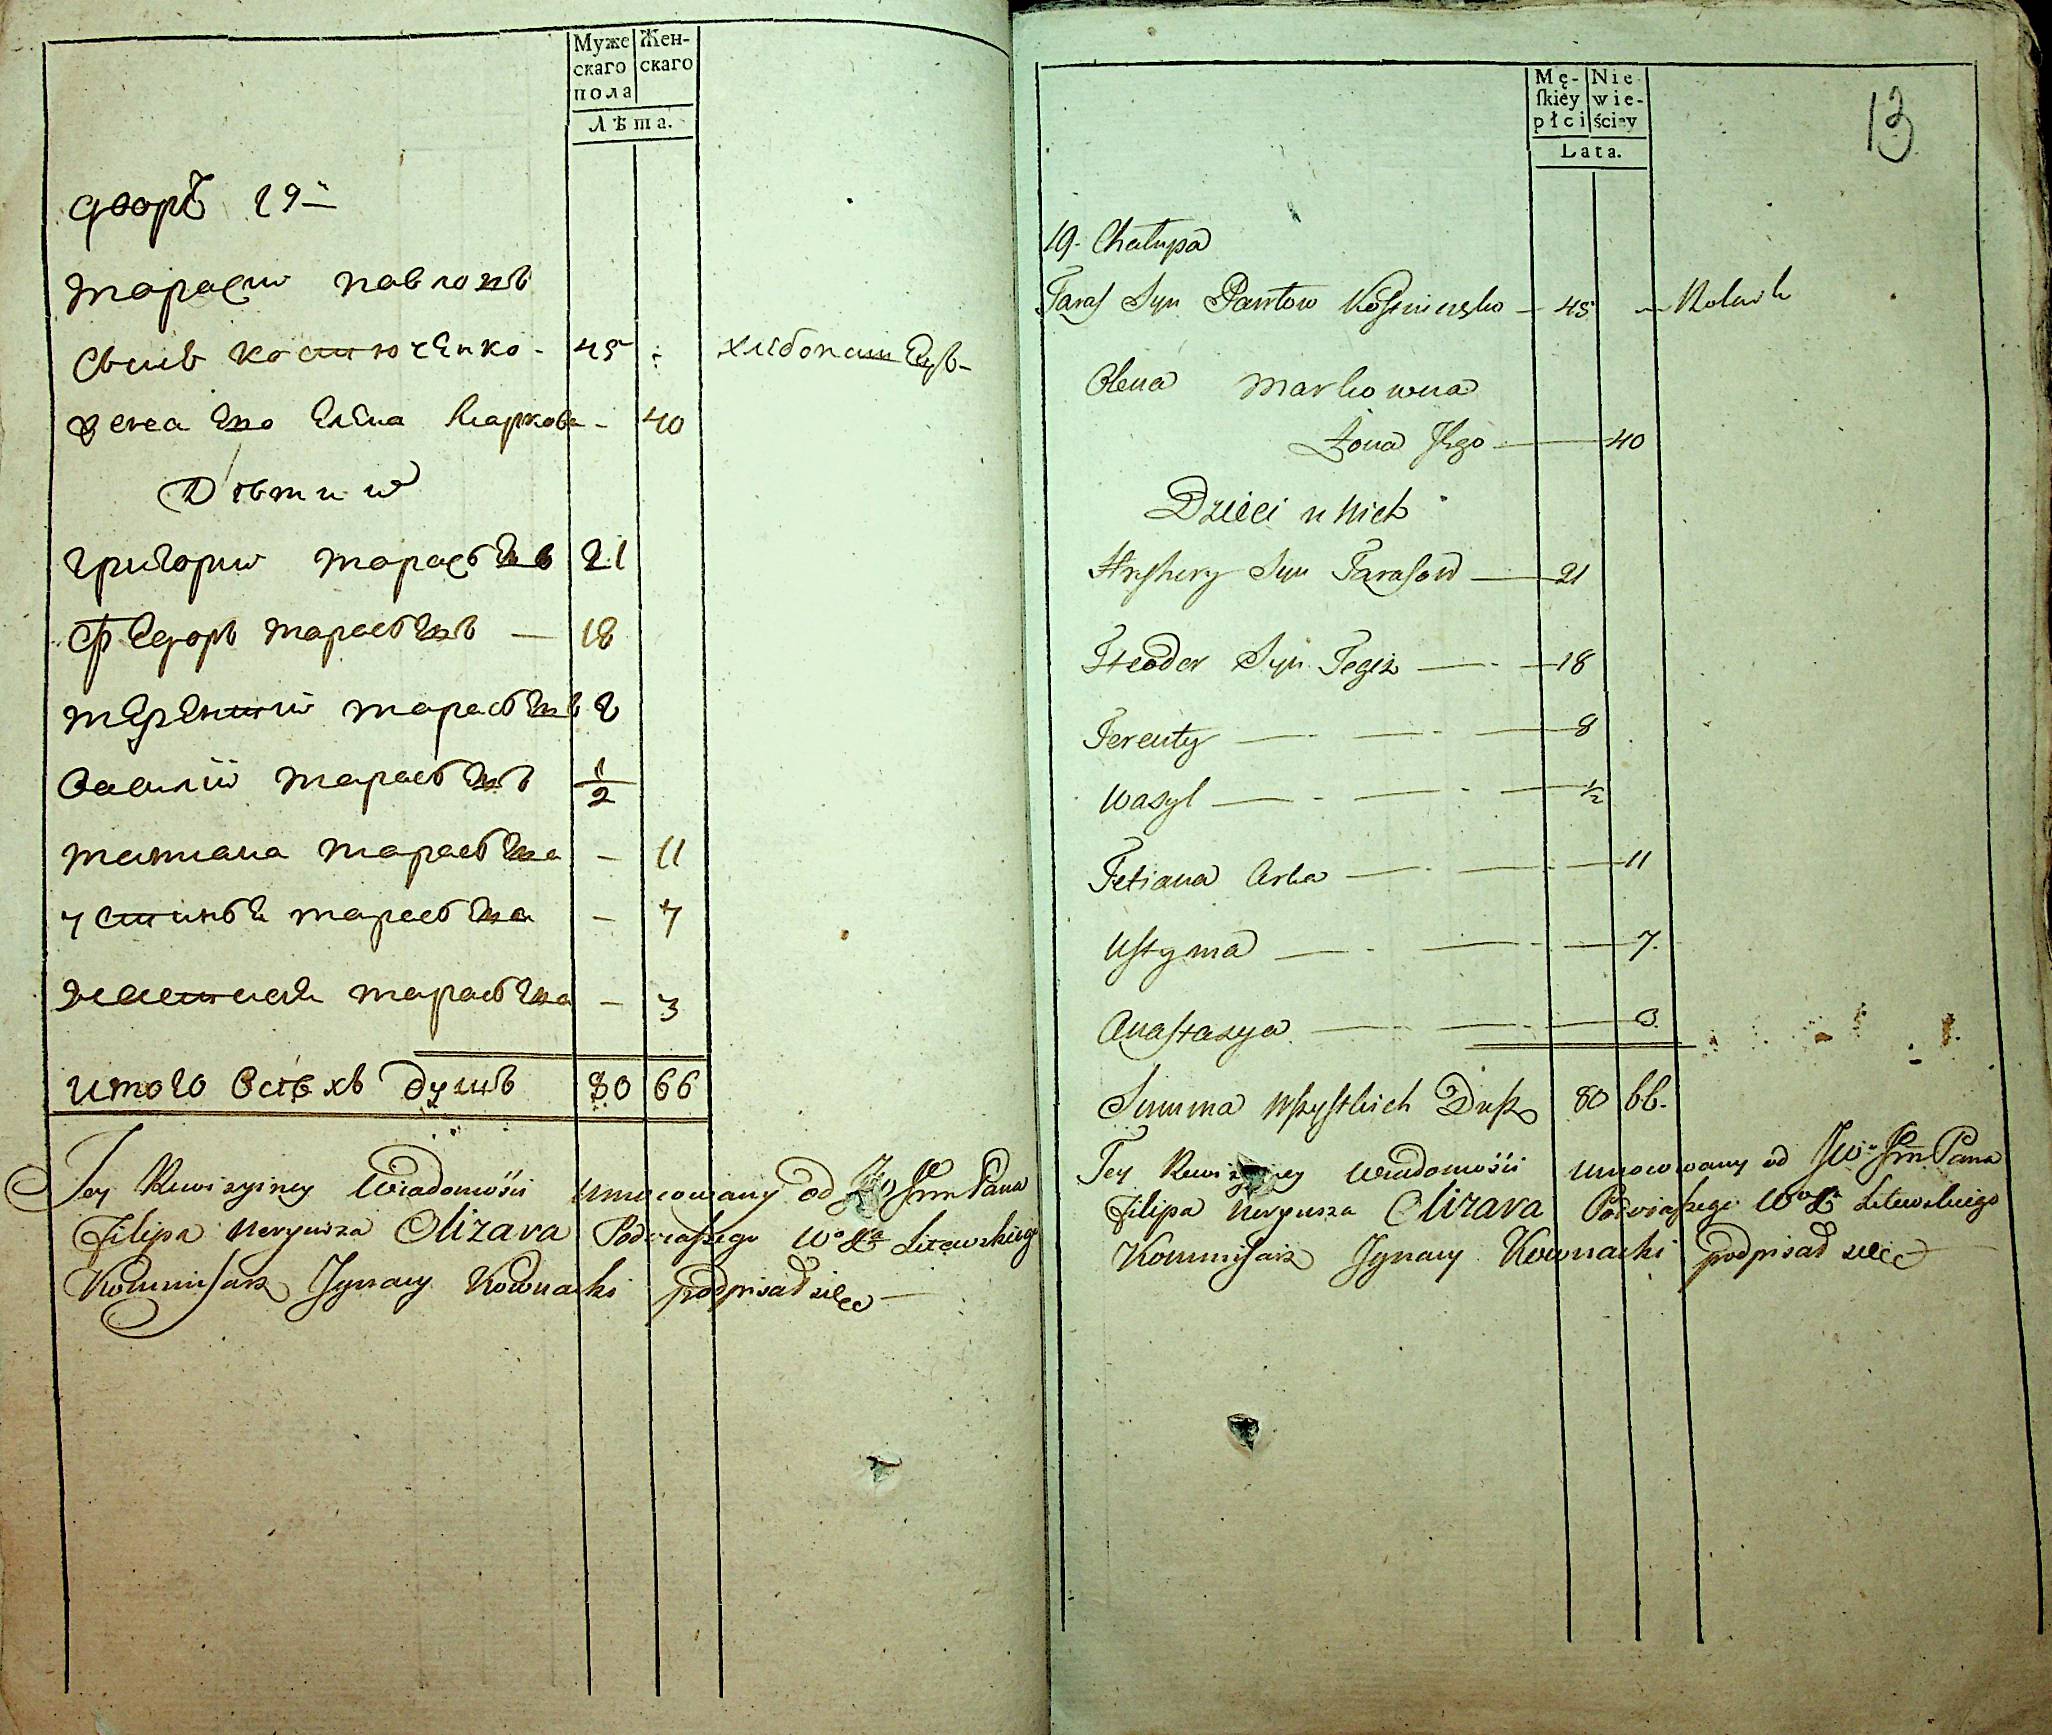 Муже Жен-
скаго скаго
пола
Лѣта.
дворъ 19й
Тарасий Павловъ
Сынъ Костюченко - 45 хлебопашецъ
жена Его Елена Маркова - 40
Дѣти и
Григорий Тарасовъ 21
Федоръ Тарасовъ — 18
Терентий Тарасовъ 8
Василий Тарасовъ 1/2
Татиана Тарасова - 11
Устинья Тарасова - 7
Настасия Тарасова - 3
итого всѣхъ душъ 80 66
Tey Rewizyiney Wiadomości umocowany od JW Jm Pana
Filipa Neryusza Olizara Podczaszego Wo Xa Litewskiego
Kommisarz Jgnacy Kownacki podpisał się
13
Mę- Nie
ſkiey wie-
płci ściey
Lata.
19. Chałupa
Taras Syn Pawłow 45 Rolnik
Olena Markowna
Żona Jego 40
Dzieci u Nich
Hryhory Syn Tarasow 21
Fteodor Syn Tegiż 18
Terenty 8
Wasyl 1/2
Tetiana Corka 11
Ustyma 7.
Anastasya 3.
Summa Wszystkich Dusz 80 66.
Tey Rewizyiney Wiadomości umocowany od JW Jm Pana
Filipa Neryusza Olizara Podczaszego Wo Xa Litewskiego
Kommisarz Jgnacy Kownacki podpisał się